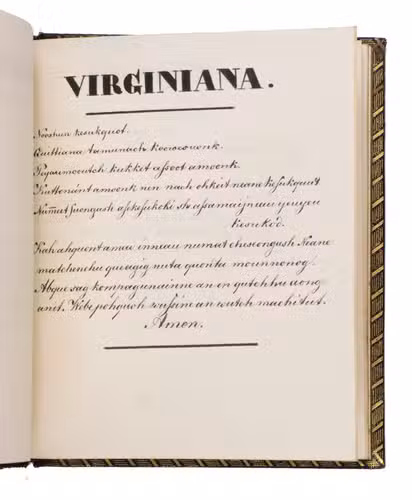 VIRGINIANA.
Nooshun kesukquot.
Quittiana tamunach koowesuonk.
Peyaumooutch kukket assoot amoonk.
Kuttenánt amoonk nen nach ohkeit neane kesukquut
Num̄eet suongash askesukoki she assamaijneau yeuyeu
kesukod.
Kah ahquontamaeinneau numat cheseongash Neane
matchenehu queagig nuta quonta mounnonog.
Ahque sag kompagunainne an en qutchhu aong
anit. Webe pohquoh wussinean wutch machitut.
Amen.